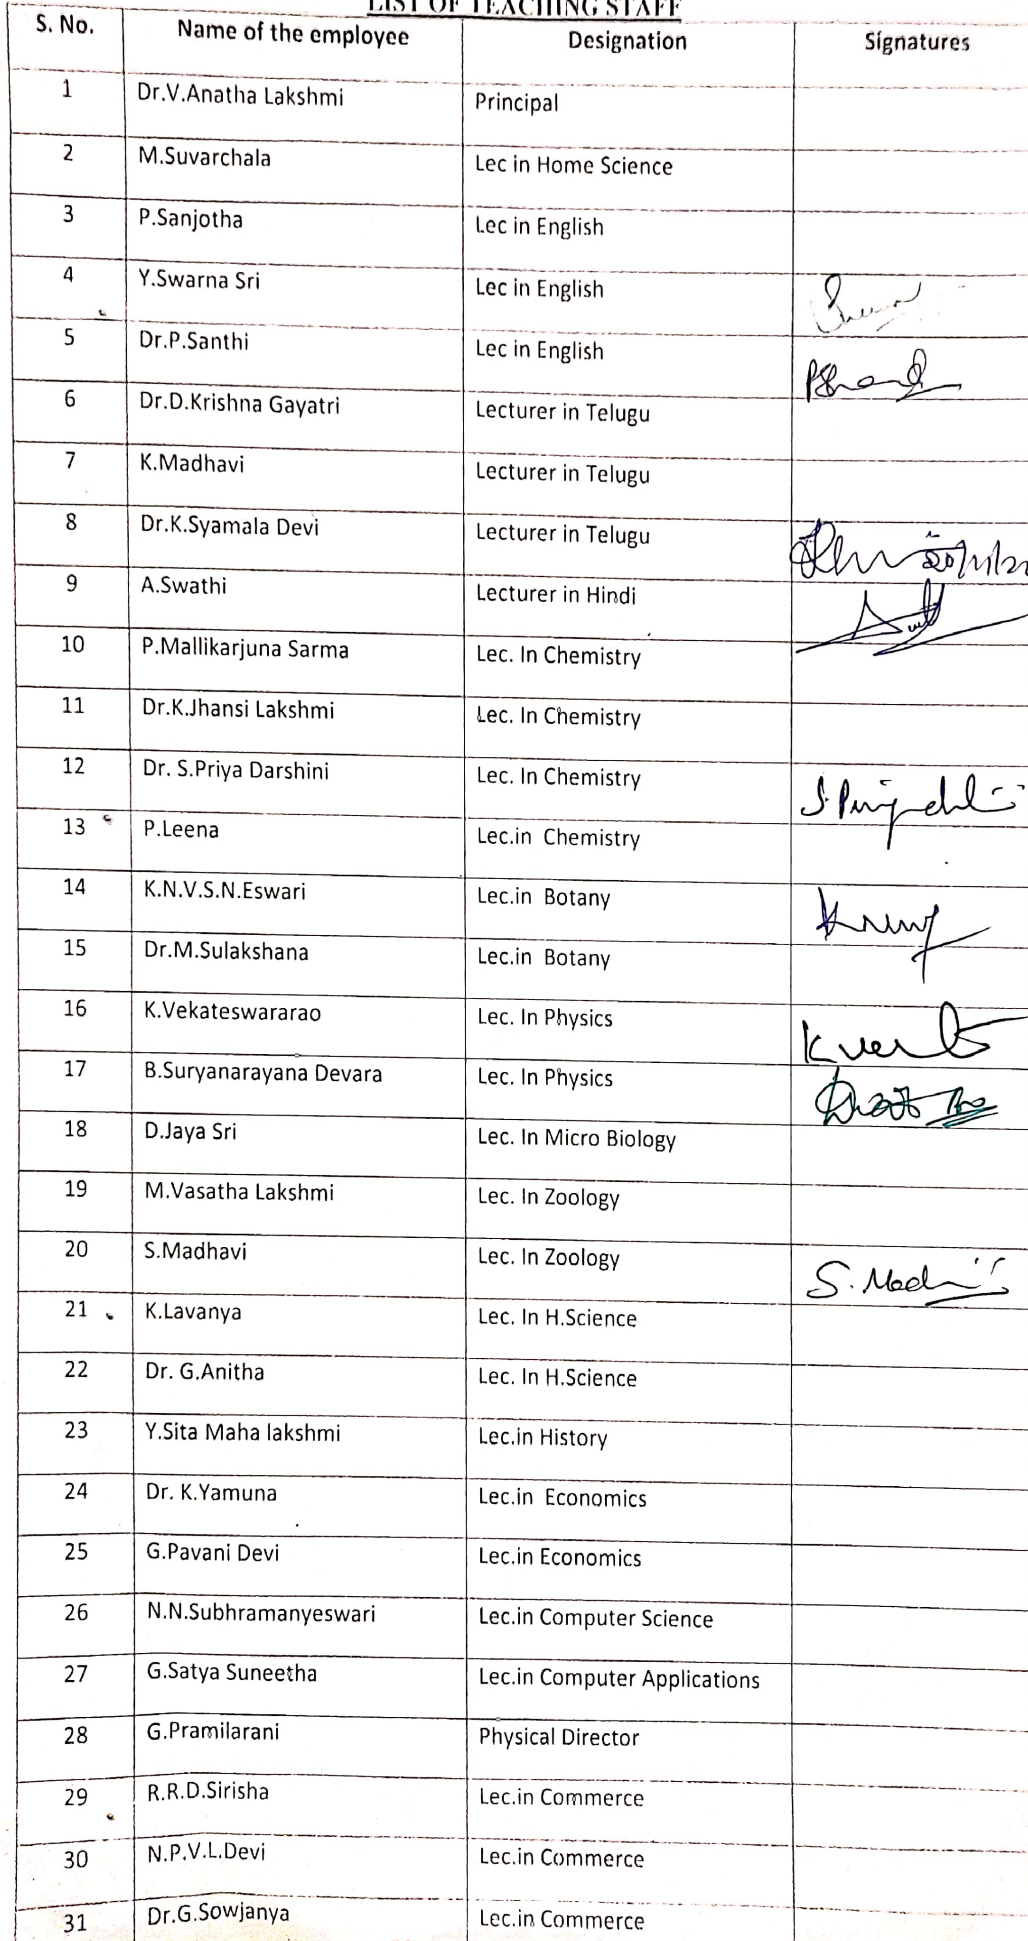 LIST OF TEACHING STAFF
S. No. Name of the employee Designation Signatures
1 Dr.V.Anatha Lakshmi Principal
2 M.Suvarchala Lec in Home Science
3 P.Sanjotha Lec in English
4 Y.Swarna Sri Lec in English
5 Dr.P.Santhi Lec in English
6 Dr.D.Krishna Gayatri Lecturer in Telugu
7 K.Madhavi Lecturer in Telugu
8 Dr.K.Syamala Devi Lecturer in Telugu
9 A.Swathi Lecturer in Hindi
10 P.Mallikarjuna Sarma Lec. In Chemistry
11 Dr.K.Jhansi Lakshmi Lec. In Chemistry
12 Dr. S.Priya Darshini Lec. In Chemistry
13 P.Leena Lec.in Chemistry
14 K.N.V.S.N.Eswari Lec.in Botany
15 Dr.M.Sulakshana Lec.in Botany
16 K.Vekateswararao Lec. In Physics
17 B.Suryanarayana Devara Lec. In Physics
18 D.Jaya Sri Lec. In Micro Biology
19 M.Vasatha Lakshmi Lec. In Zoology
20 S.Madhavi Lec. In Zoology
21 K.Lavanya Lec. In H.Science
22 Dr. G.Anitha Lec. In H.Science
23 Y.Sita Maha lakshmi Lec.in History
24 Dr. K.Yamuna Lec.in Economics
25 G.Pavani Devi Lec.in Economics
26 N.N.Subhramanyeswari Lec.in Computer Science
27 G.Satya Suneetha Lec.in Computer Applications
28 G.Pramilarani Physical Director
29 R.R.D.Sirisha Lec.in Commerce
30 N.P.V.L.Devi Lec.in Commerce
31 Dr.G.Sowjanya Lec.in Commerce